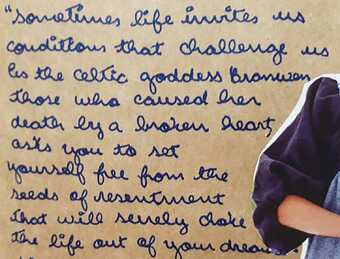 "Sometimes life invites us
conditions that challenge us
the celtic goddess Branwen
those who caused her
death by a broken heart,
asks you to set
yourself free from the
seeds of resentment
that will choke
the life out of your dreams